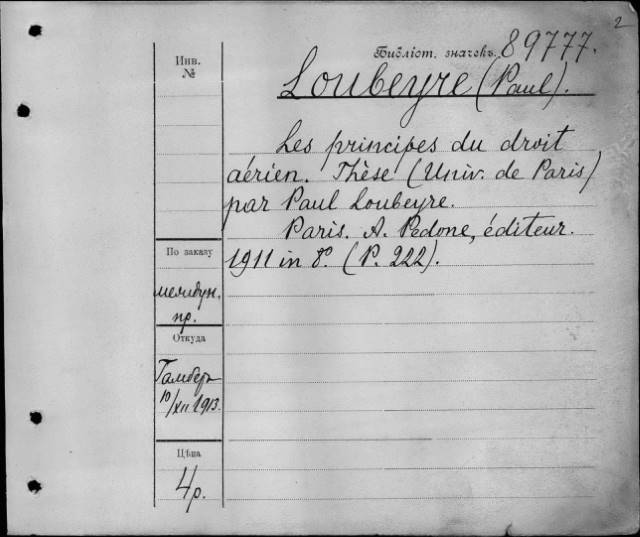 2
Библіот. значекъ. 89777.
Инв.
№
Loubeyre (Paul).
Les principes du droit
aérien. Thèse (Univ. de Paris)
par Paul Loubeyre.
Paris. A. Pedone, éditeur.
1911 in 8°. (P. 222).
По заказу
междун.
пр.
Откуда
Гамберъ
10/XII 1913.
Цѣна
4р.